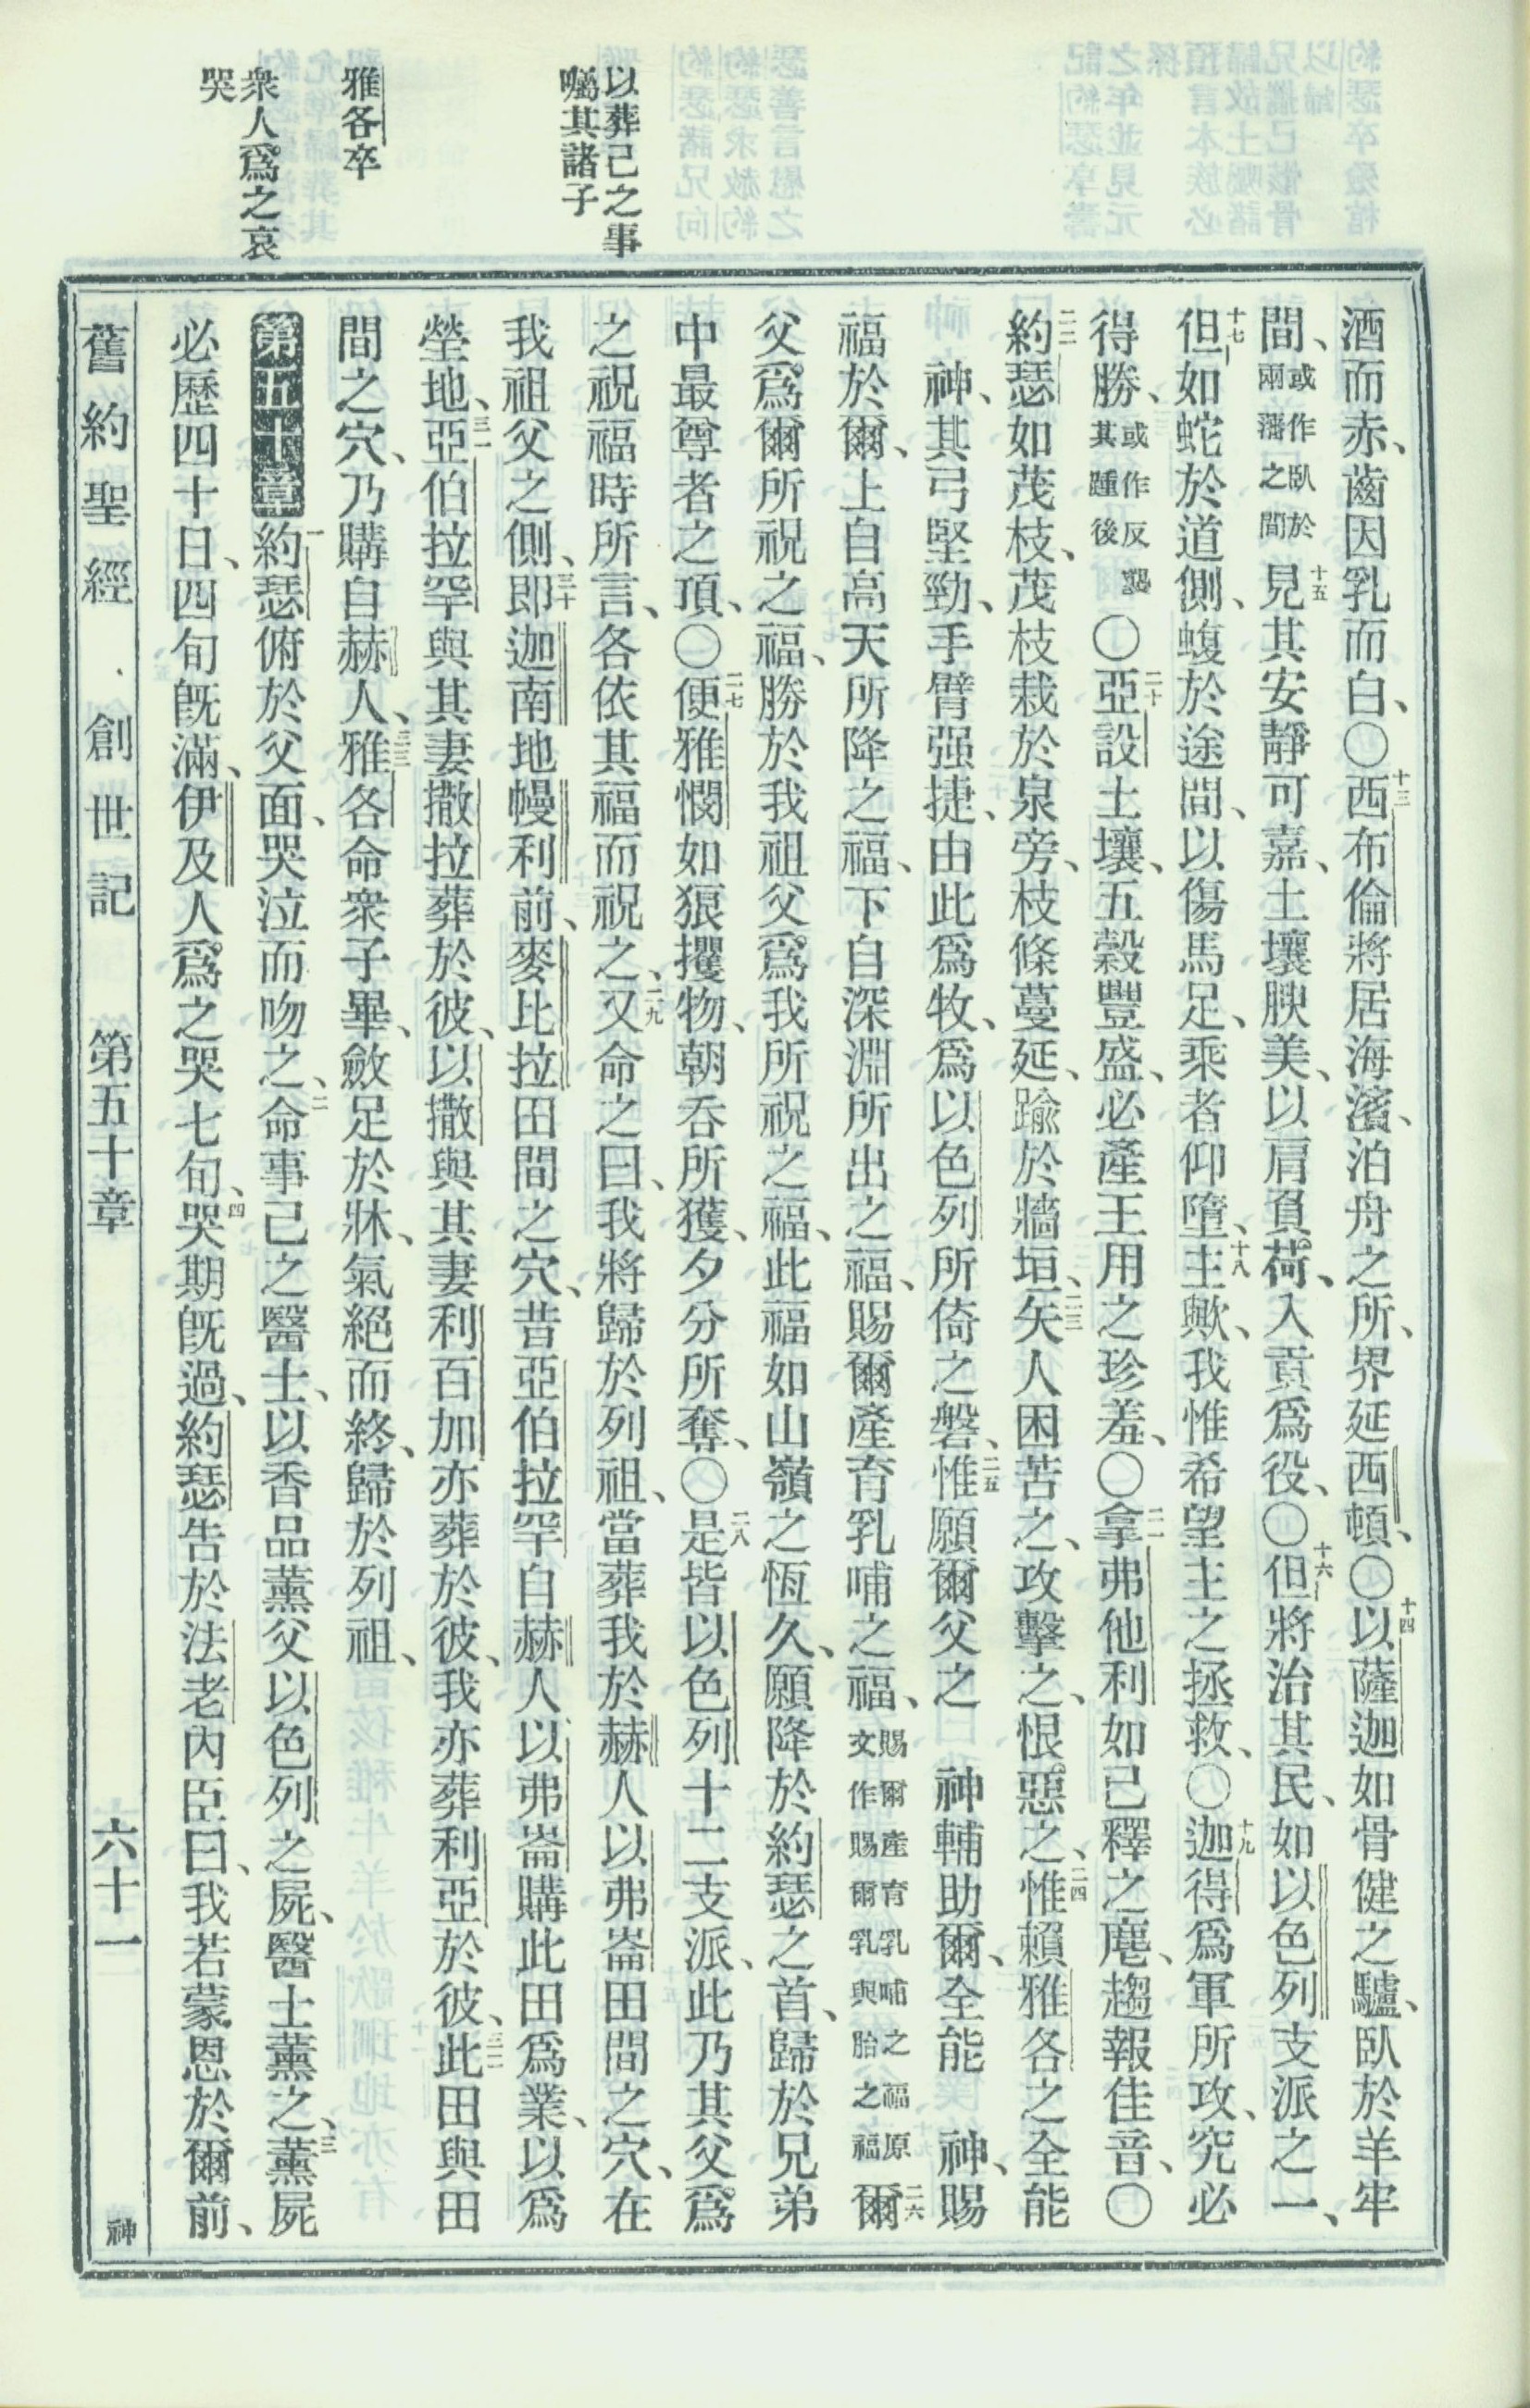 以葬己之事
囑其諸子
雅各卒
衆人爲之哀
哭
酒而赤、齒因乳而白、〇十三西布倫將居海濱、泊舟之所、界延西頓、〇十四以薩迦如骨健之驢、臥於羊牢
間、或作臥於兩籓之間十五見其安靜可嘉、土壤腴美、以肩負荷、入貢爲役、〇十六但將治其民、如以色列支派之一、
十七但如蛇於道側、蝮於途間、以傷馬足、乘者仰墮、十八主歟、我惟希望主之拯救、〇十九迦得爲軍所攻、究必
得勝、或作反襲其踵後〇二十亞設土壤、五穀豐盛、必產王用之珍羞、〇二一拿弗他利如已釋之麀、趨報佳音、〇
二二約瑟如茂枝、茂枝栽於泉旁、枝條蔓延、踰於牆垣、二三矢人困苦之、攻擊之、恨惡之、二四惟賴雅各之全能
神、其弓堅勁、手臂强捷、由此爲牧、爲以色列所倚之磐、二五惟願爾父之 神輔助爾、全能 神、賜
福於爾、上自高天所降之福、下自深淵所出之福、賜爾產育乳哺之福、賜爾產育乳哺之福原文作賜爾乳與胎之福二六爾
父爲爾所祝之福、勝於我祖父爲我所祝之福、此福如山嶺之恆久、願降於約瑟之首、歸於兄弟
中最尊者之頂、〇二七便雅憫如狼攫物、朝吞所獲、夕分所奪、〇二八是皆以色列十二支派、此乃其父爲
之祝福時所言、各依其福而祝之、二九又命之曰、我將歸於列祖、當葬我於赫人以弗崙田間之穴、在
我祖父之側、三十卽迦南地幔利前、麥比拉田間之穴、昔亞伯拉罕自赫人以弗崙購此田爲業、以爲
塋地、三一亞伯拉罕與其妻撒拉葬於彼、以撒與其妻利百加亦葬於彼、我亦葬利亞於彼、三二此田與田
間之穴、乃購自赫人、三三雅各命衆子畢、斂足於牀、氣絕而終、歸於列祖、
第五十章一約瑟俯於父面、哭泣而吻之、二命事己之醫士、以香品薰父以色列之屍、醫士薰之、三薰屍
必歷四十日、四旬旣滿、伊及人爲之哭七旬、四哭期旣過、約瑟告於法老內臣曰、我若蒙恩於爾前、
舊約聖經 創世記 第五十章 六十一 神